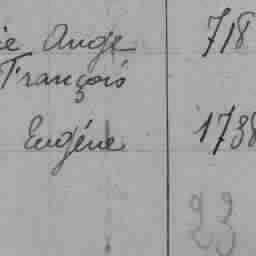 ie Ange 718
François
Eugène 1738
23